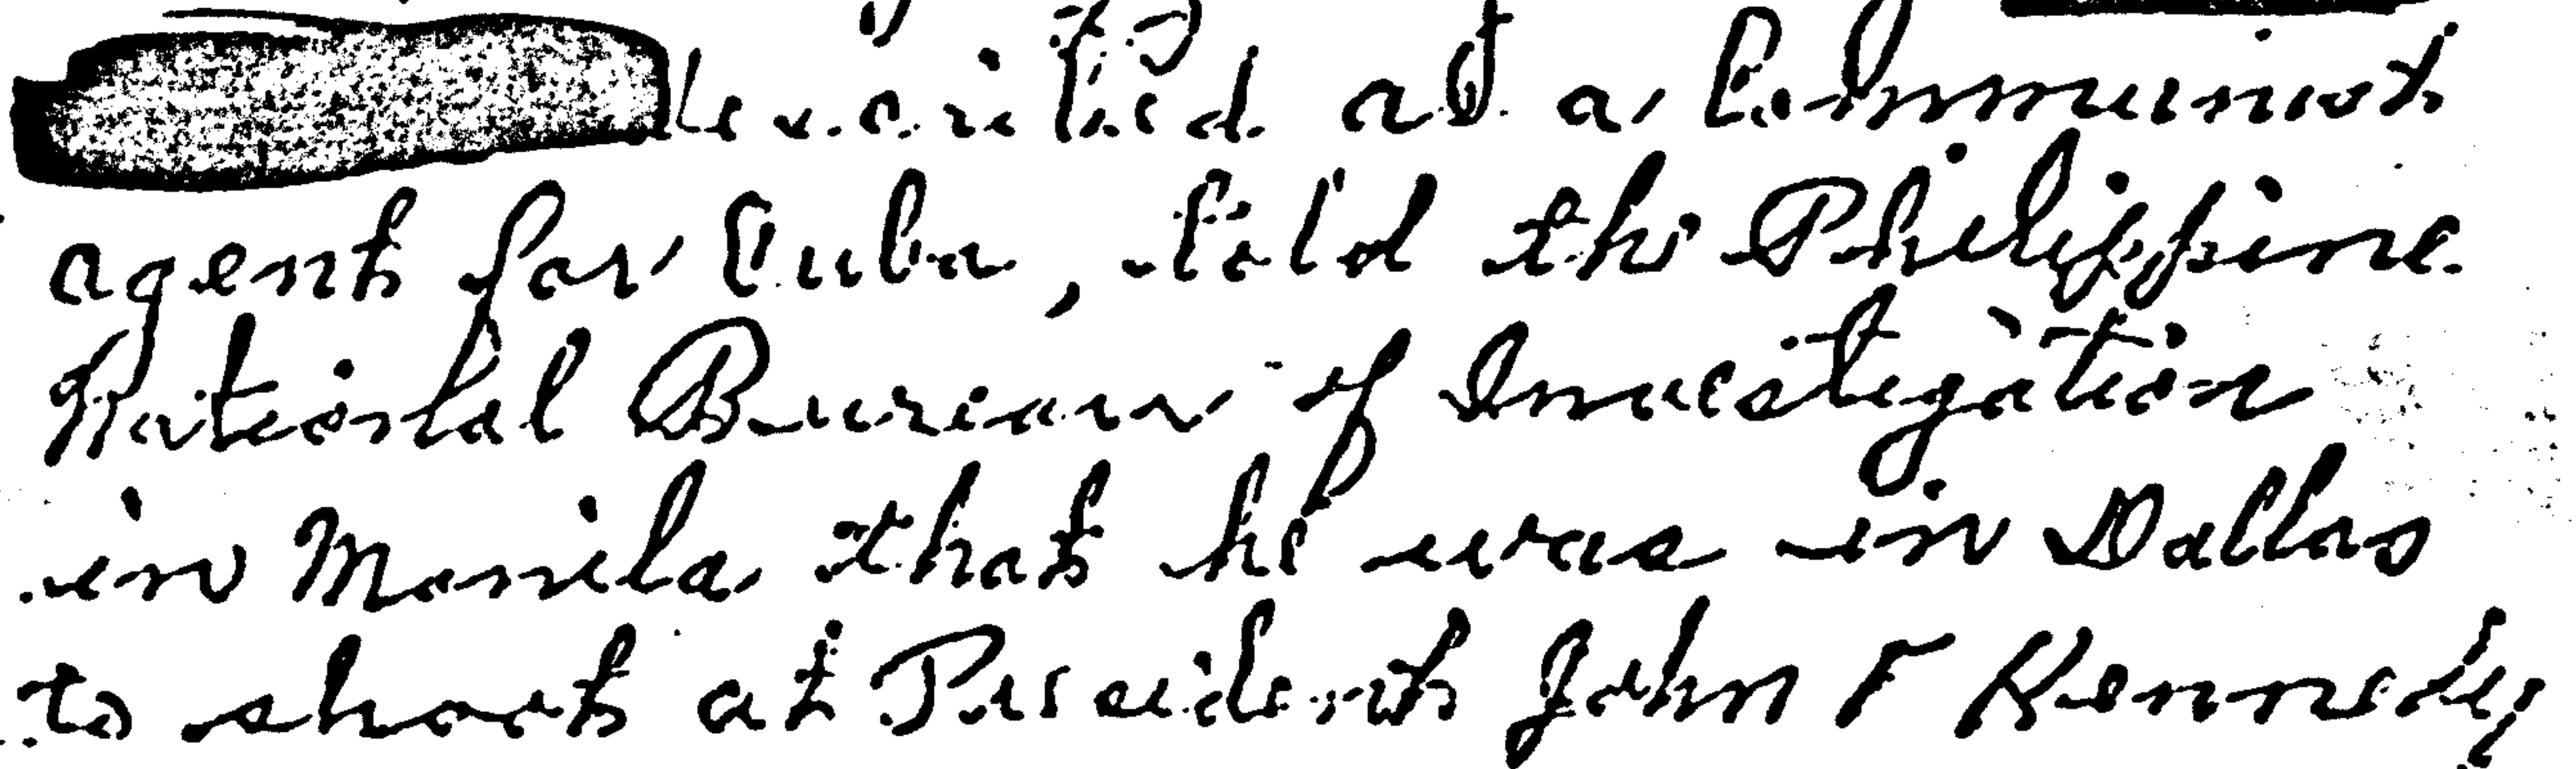 recruited as a Communist
agent for Cuba, told the Philippine
National Bureau of Investigation
in Manila that he was in Dallas
to shoot at President John F Kennedy